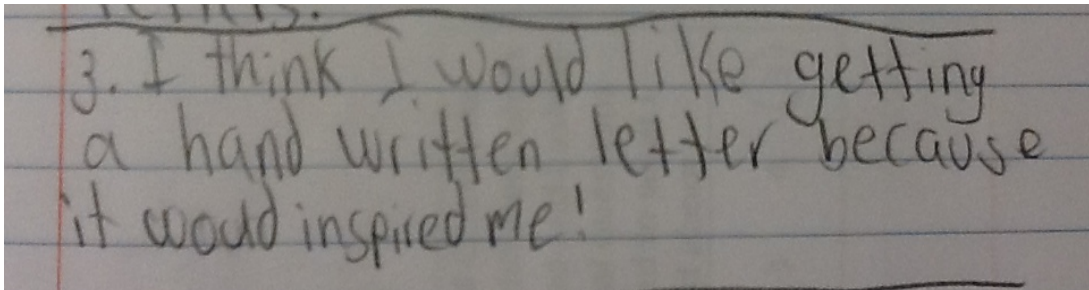 3. I think I would like getting
a hand written letter because
it would inspired me!